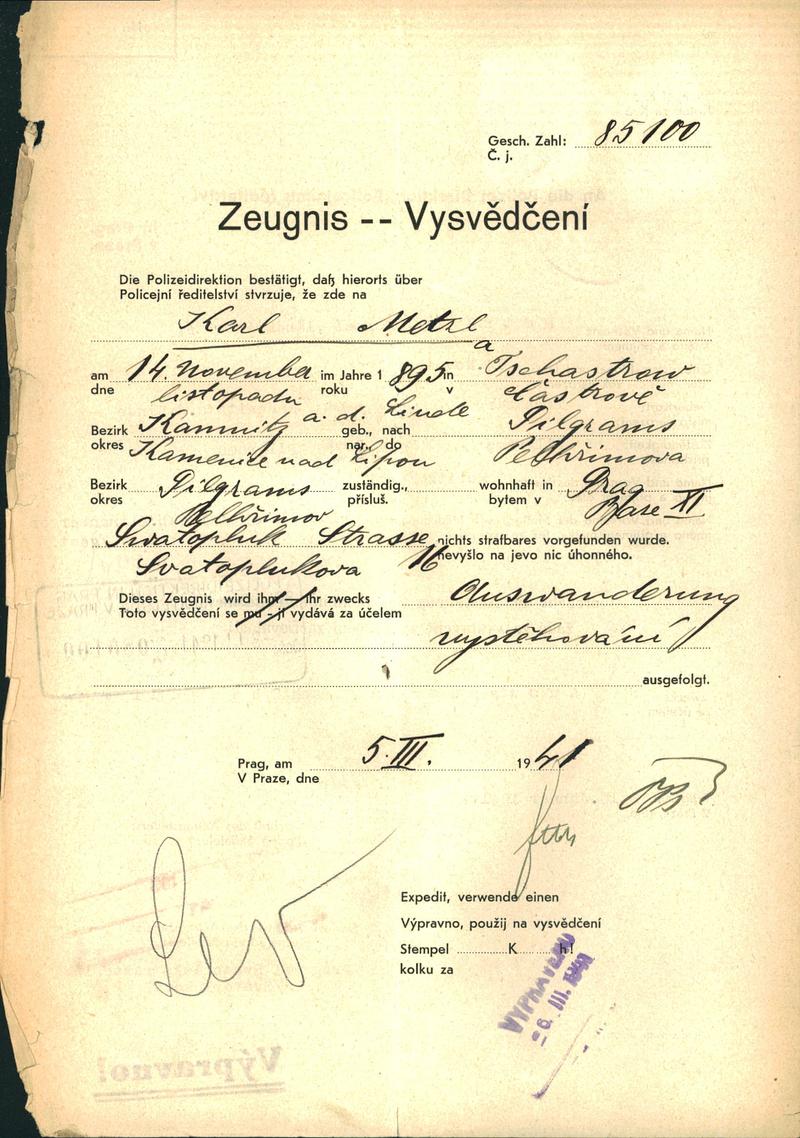 Gesch. Zahl: 85100
Č. j.
Zeugnis -- Vysvědčení
Die Polizeidirektion bestätigt, daß hierorts über
Policejní ředitelství stvrzuje, že zde na
Karl Metzl
am 14. November im Jahre 1 895 in Tschastrow
dne listopadu roku v Částrově
Bezirk Kamnitz a. d. Linde geb., nach Pilgrams
okres Kamenice nad Lipou nar., do Pelhřimova
Bezirk Pilgrams zuständig., wohnhaft in Prag
okres Pelhřimov přísluš. bytem v Praze XI
Swatopluk Strasse nichts strafbares vorgefunden wurde.
Svatoplukova 16 nevyšlo na jevo nic úhonného.
Dieses Zeugnis wird ihm — ihr zwecks Auswanderung
Toto vysvědčení se mu - jí vydává za účelem
vystěhování
ausgefolgt.
Prag, am 5. III. 1941
V Praze, dne
Expedit, verwende einen
Výpravno, použij na vysvědčení
Stempel K h!
kolku za
VYPRAVENO
- 6. III. 1941
Výpravno!